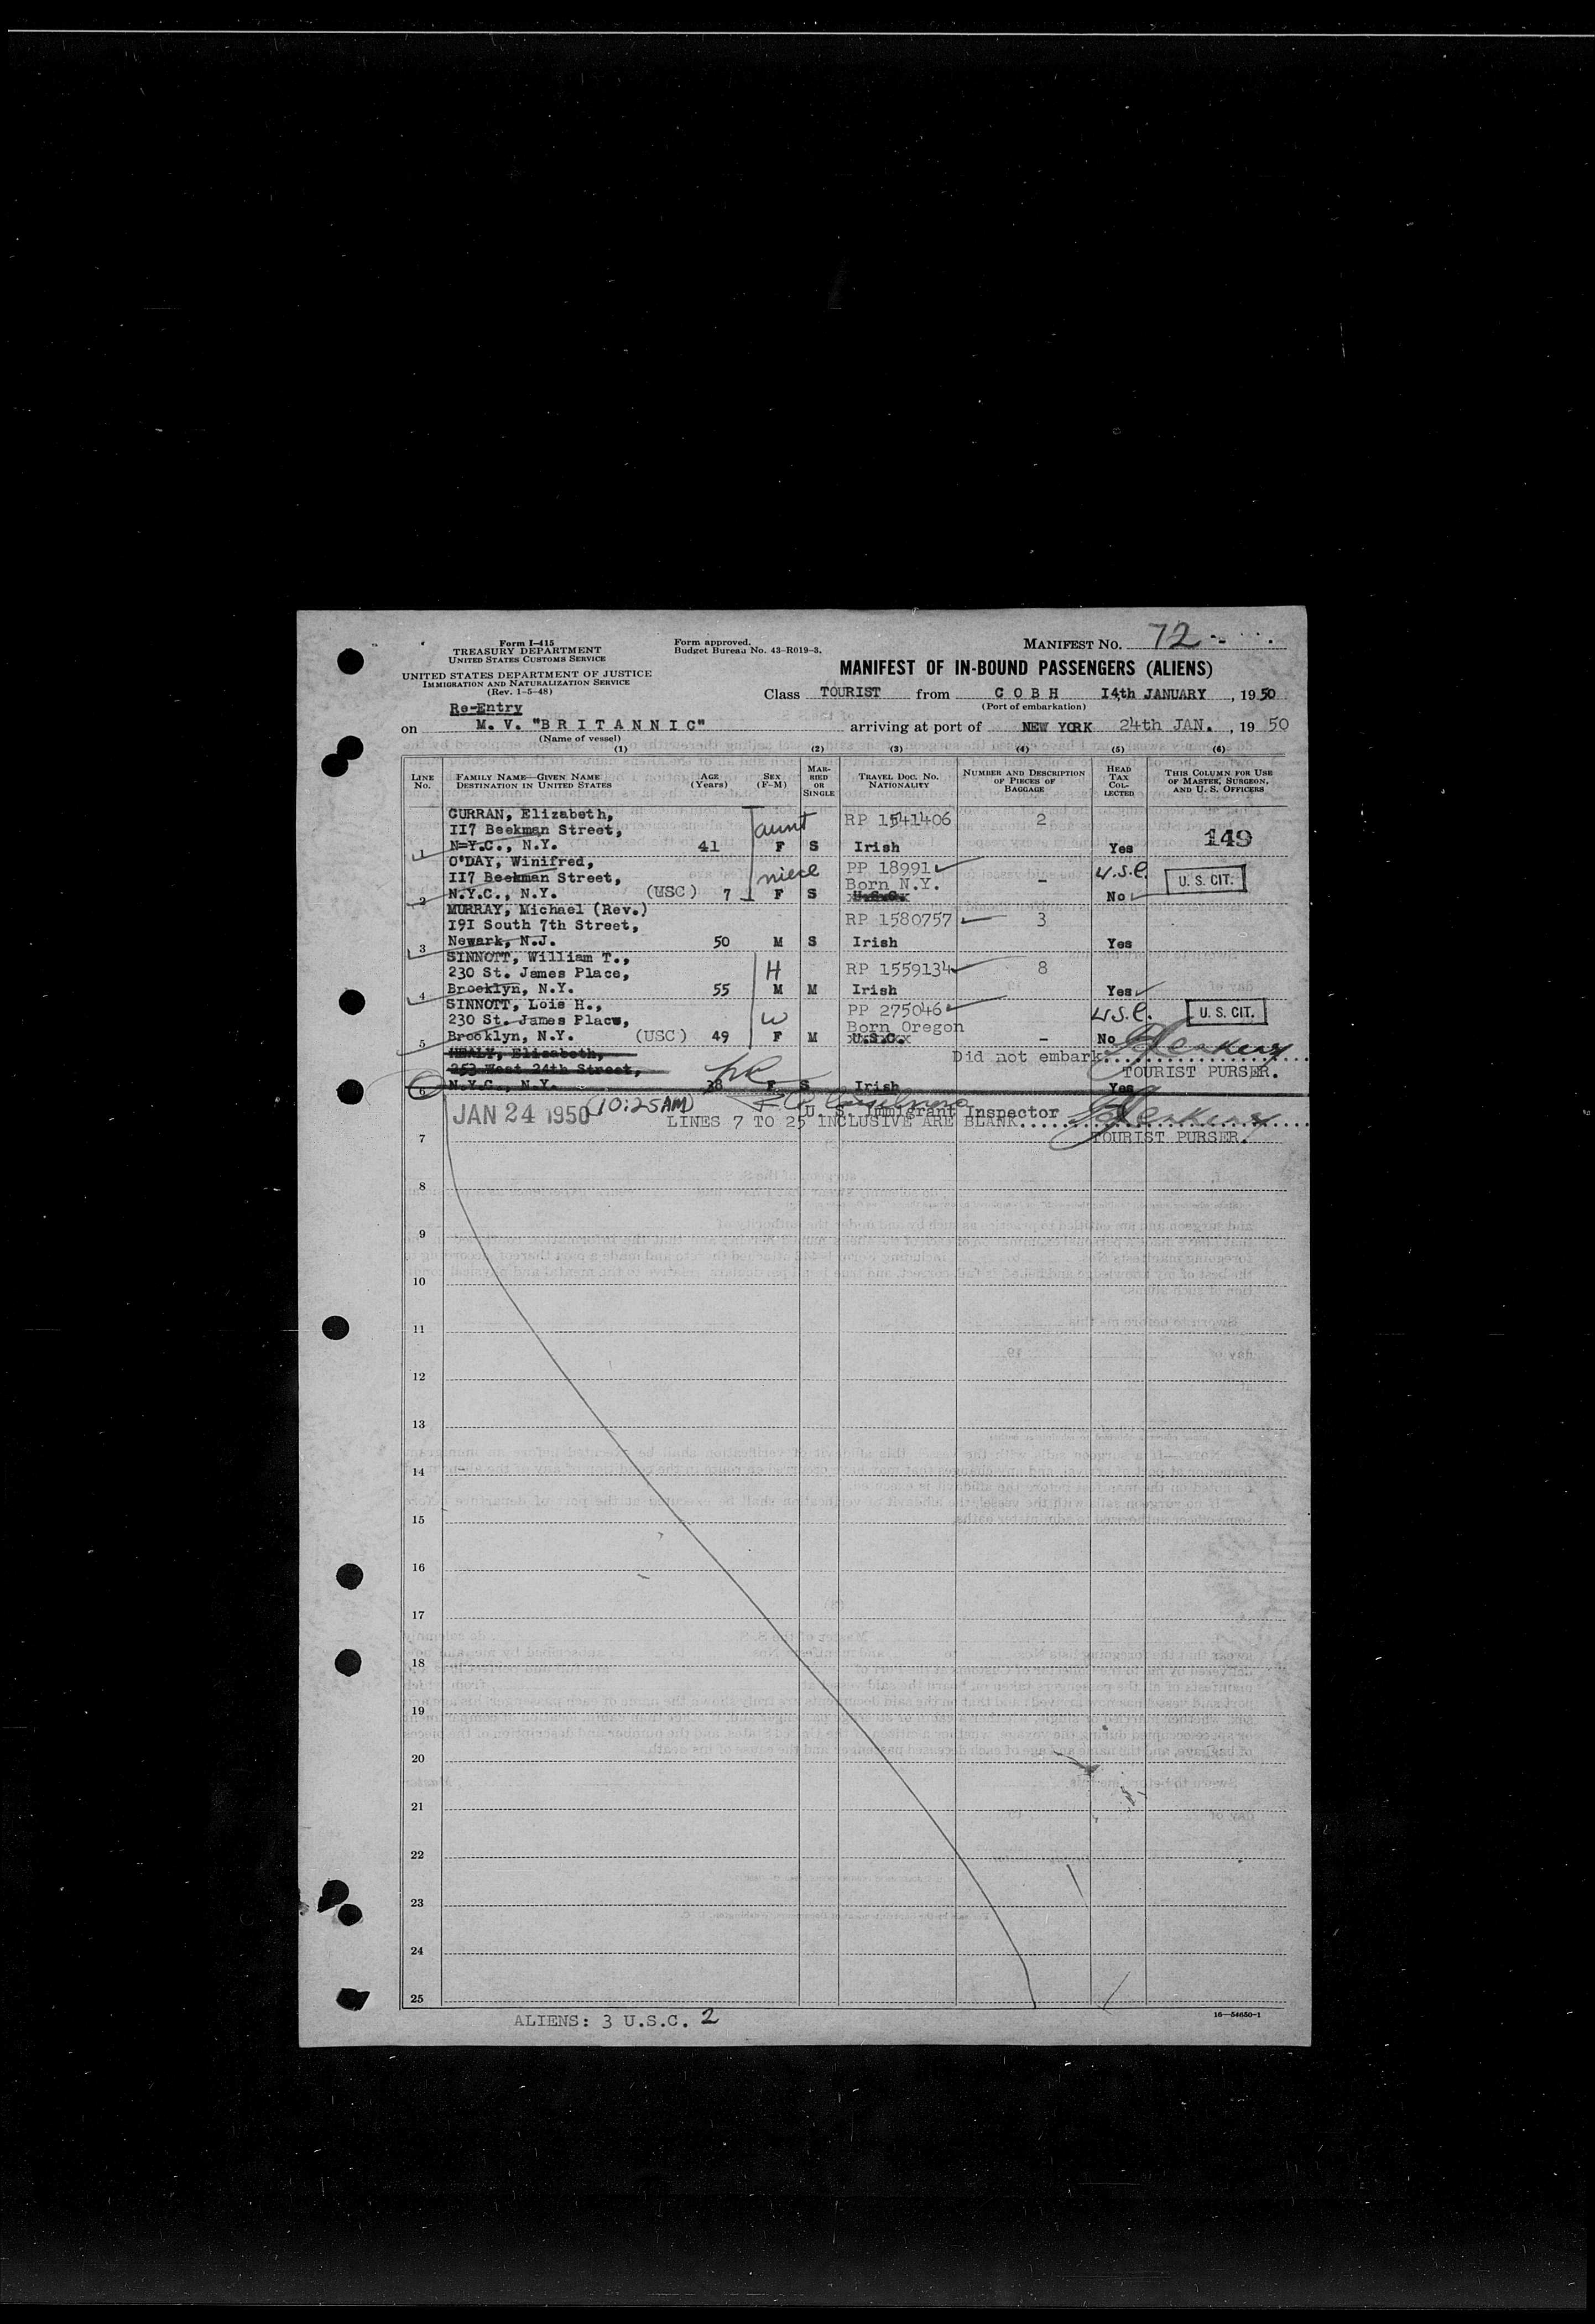 Form I-415
TREASURY DEPARTMENT
UNITED STATES CUSTOMS SERVICE
UNITED STATES DEPARTMENT OF JUSTICE
IMMIGRATION AND NATURALIZATION SERVICE
(Rev. 1-5-48)
Form approved.
Budget Bureau No. 43-R019-3.
MANIFEST NO. 72
MANIFEST OF IN-BOUND PASSENGERS (ALIENS)
Class TOURIST from C O B H I4th JANUARY, 1950
(Port of embarkation)
Re-Entry
on M. V. "B R I T A N N I C" arriving at port of NEW YORK 24th JAN., 19 50
(Name of vessel)
(1) (2) (3) (4) (5) (6)
LINE No. FAMILY NAME—GIVEN NAME DESTINATION IN UNITED STATES AGE (Years) SEX (F-M) MARRIED OR SINGLE TRAVEL DOC. NO. NATIONALITY NUMBER AND DESCRIPTION OF PIECES OF BAGGAGE HEAD TAX COLLECTED THIS COLUMN FOR USE OF MASTER, SURGEON, AND U. S. OFFICERS
CURRAN, Elizabeth, aunt RP 1541406 2
II7 Beekman Street, 149
1 N=Y.C., N.Y. 41 F S Irish Yes
O'DAY, Winifred, niece PP 18991 U.S.C.
II7 Beekman Street, Born N.Y. – U. S. CIT.
2 N.Y.C., N.Y. (USC) 7 F S U.S.C. No
MURRAY, Michael (Rev.)
I9I South 7th Street, RP 1580757 3
3 Newark, N.J. 50 M S Irish Yes
SINNOTT, William T.,
230 St. James Place, H RP 1559134 8
4 Brooklyn, N.Y. 55 M M Irish Yes
SINNOTT, Lois H., PP 275046 U.S.C. U. S. CIT.
230 St. James Place, W Born Oregon
5 Brooklyn, N.Y. (USC) 49 F M U.S.C. – No
HEALY, Elizabeth, Did not embark
253 West 24th Street, TOURIST PURSER.
6 N.Y.C., N.Y. 38 F S Irish Yes
JAN 24 1950 (10:25AM) U. S. Immigrant Inspector
LINES 7 TO 25 INCLUSIVE ARE BLANK
7 TOURIST PURSER.
8
9
10
11
12
13
14
15
16
17
18
19
20
21
22
23
24
25
ALIENS: 3 U.S.C. 2
16—54650-1